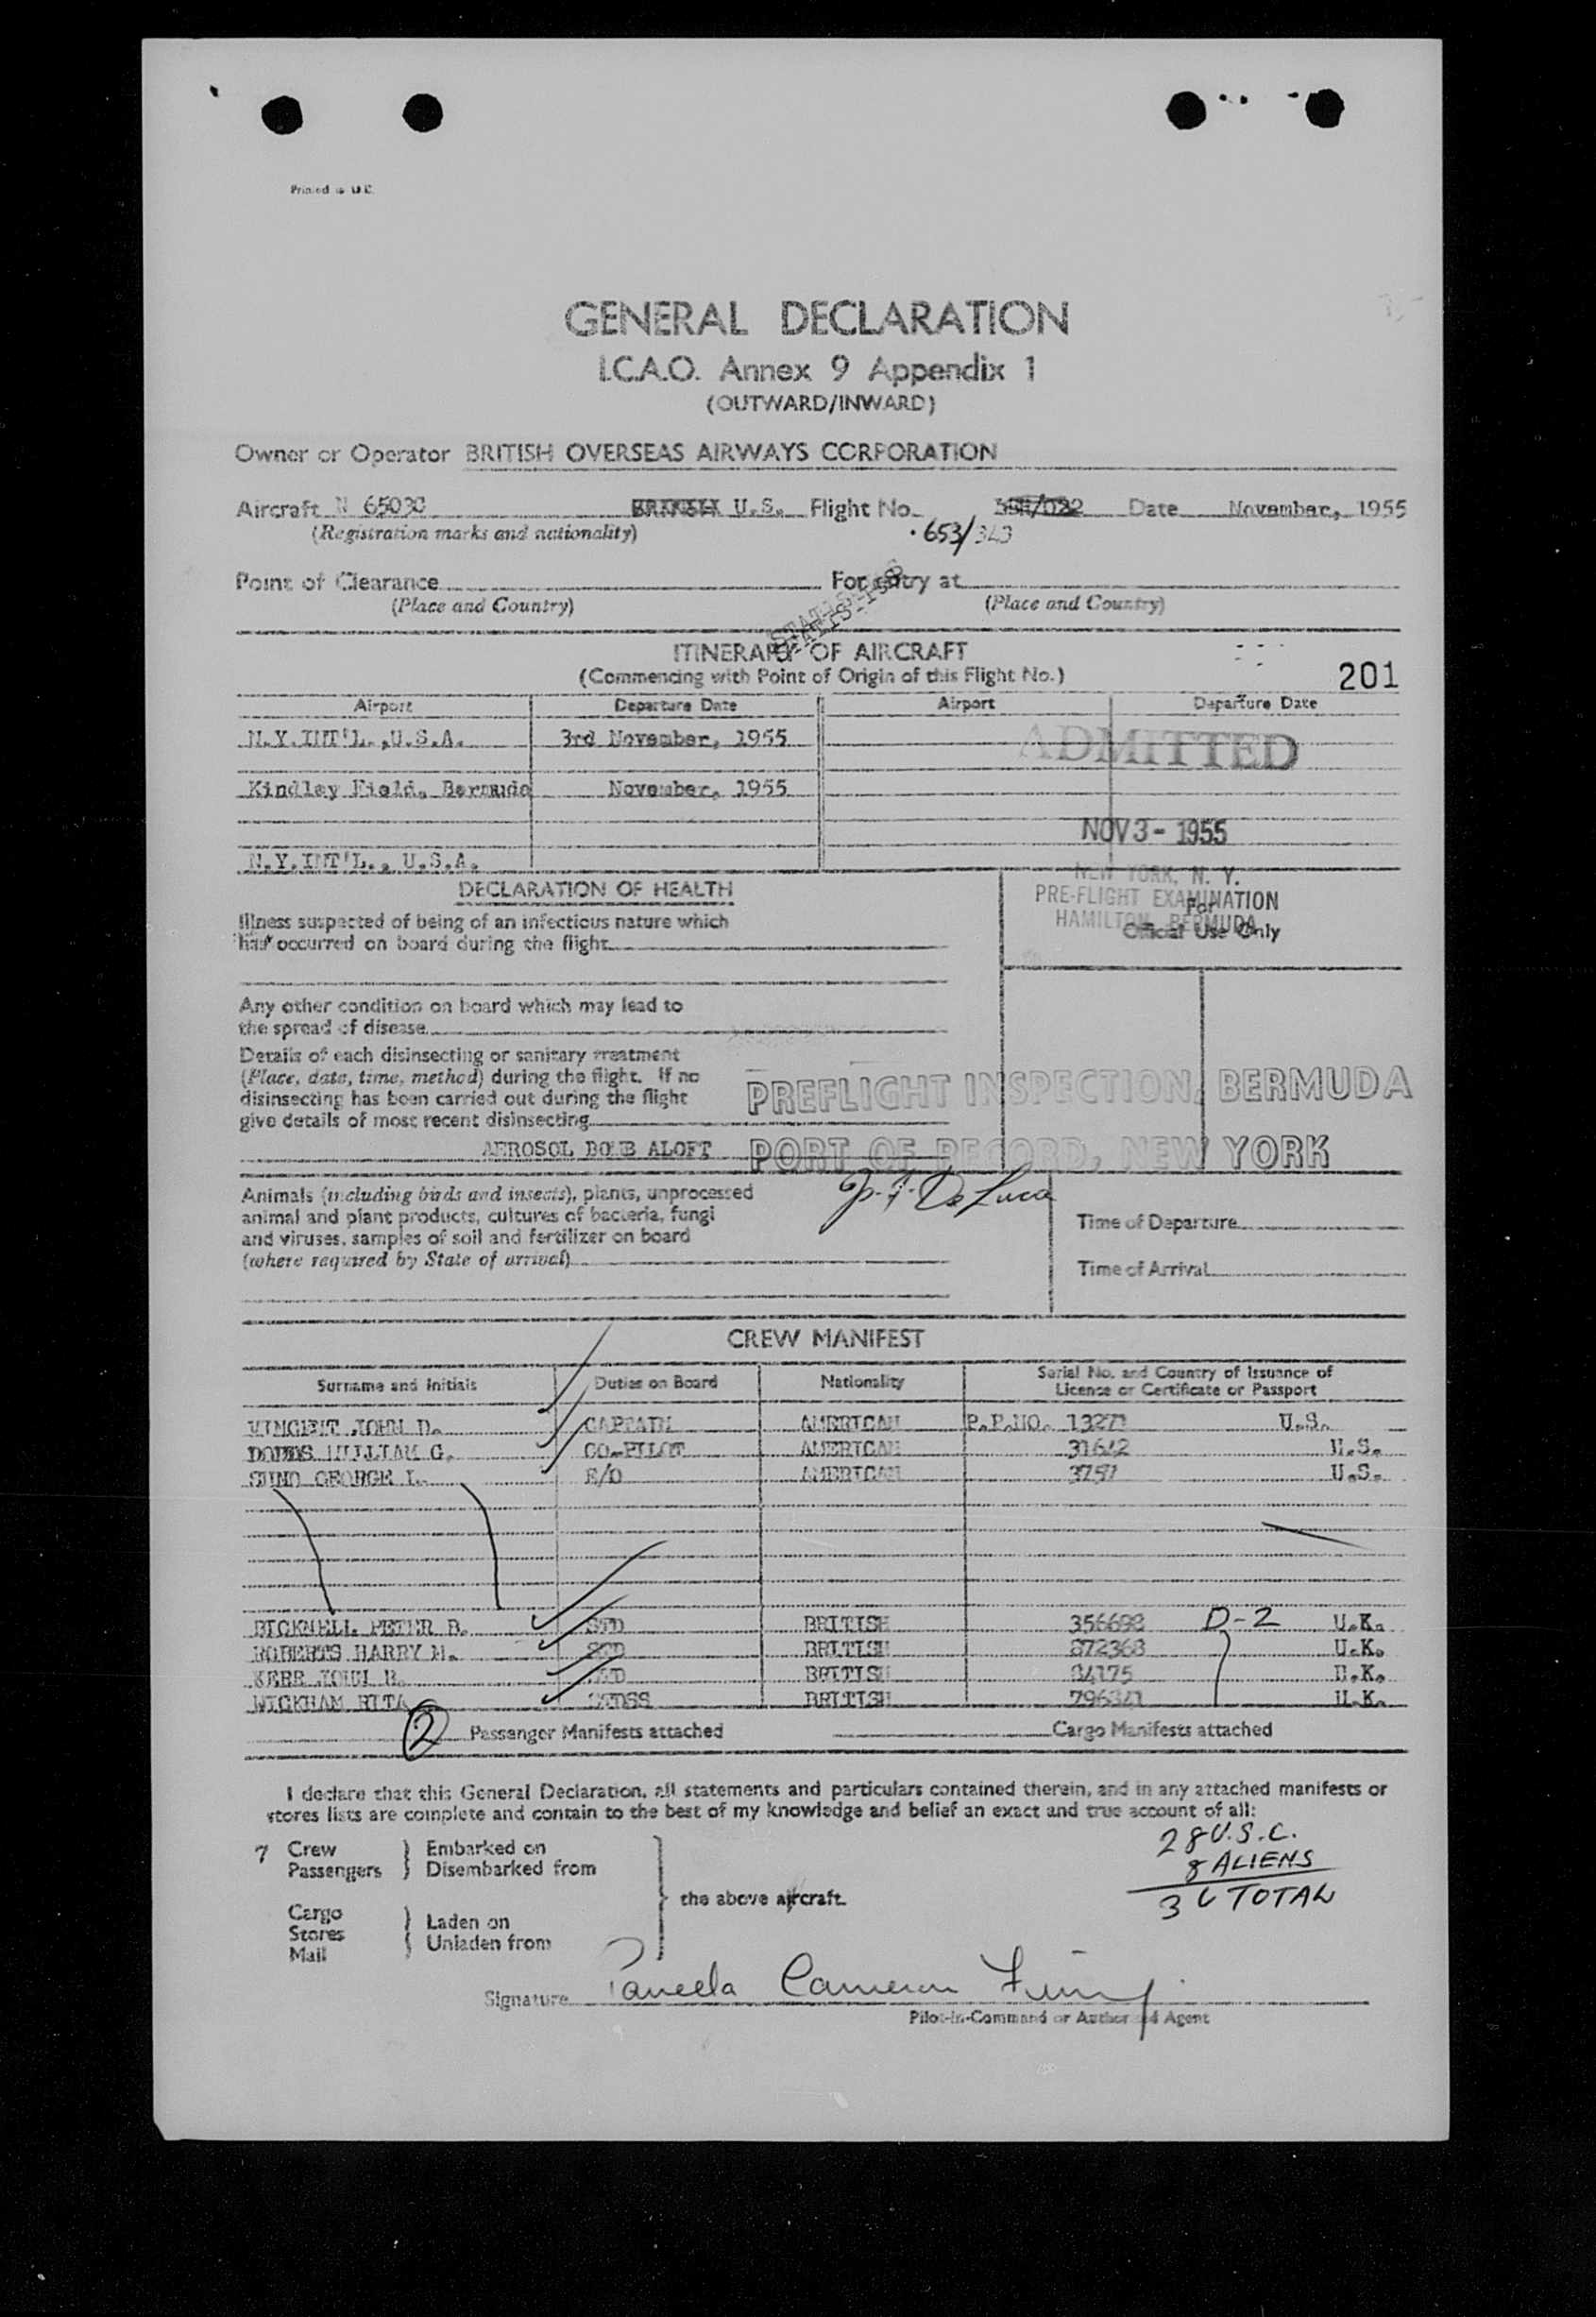 Printed in U.K.
GENERAL DECLARATION
I.C.A.O. Annex 9 Appendix 1
(OUTWARD/INWARD)
Owner or Operator BRITISH OVERSEAS AIRWAYS CORPORATION
Aircraft N 6503C U.S. Flight No. Date November, 1955
(Registration marks and nationality) 653/
Point of Clearance For entry at
(Place and Country) (Place and Country)
ITINERARY OF AIRCRAFT
(Commencing with Point of Origin of this Flight No.) 201
Airport Departure Date Airport Departure Date
N.Y.INT'L.,U.S.A. 3rd November, 1955
ADMITTED
Kindley Field, Bermuda November, 1955
NOV 3 - 1955
N.Y.INT'L., U.S.A.
NEW YORK, N. Y.
PRE-FLIGHT EXAMINATION
HAMILTON, BERMUDA
For
Official Use Only
DECLARATION OF HEALTH
Illness suspected of being of an infectious nature which
has occurred on board during the flight
Any other condition on board which may lead to
the spread of disease
Details of each disinsecting or sanitary treatment
(Place, date, time, method) during the flight. If no
disinsecting has been carried out during the flight
give details of most recent disinsecting
AEROSOL BOMB ALOFT
PREFLIGHT INSPECTION, BERMUDA
PORT OF RECORD, NEW YORK
Animals (including birds and insects), plants, unprocessed
animal and plant products, cultures of bacteria, fungi
and viruses, samples of soil and fertilizer on board
(where required by State of arrival)
De Luca
Time of Departure
Time of Arrival
CREW MANIFEST
Surname and Initials Duties on Board Nationality Serial No. and Country of Issuance of
License or Certificate or Passport
VINCENT JOHN D. CAPTAIN AMERICAN P.P.NO. 13271 U.S.
DODDS WILLIAM G. CO-PILOT AMERICAN 31642 U.S.
GEORGE L. E/O AMERICAN 3757 U.S.
BICKNELL PETER B. STD BRITISH 356698 D-2 U.K.
ROBERTS HARRY H. STD BRITISH 872368 U.K.
KERR JOHN R. STD BRITISH 84175 U.K.
WICKHAM RITA STDSS BRITISH U.K.
2 Passenger Manifests attached Cargo Manifests attached
I declare that this General Declaration, all statements and particulars contained therein, and in any attached manifests or
stores lists are complete and contain to the best of my knowledge and belief an exact and true account of all:
28 U.S.C.
8 ALIENS
36 TOTAL
7 Crew Embarked on
Passengers Disembarked from
the above aircraft.
Cargo
Stores Laden on
Mail Unladen from
Signature Pamela Cameron
Pilot-in-Command or Authorised Agent